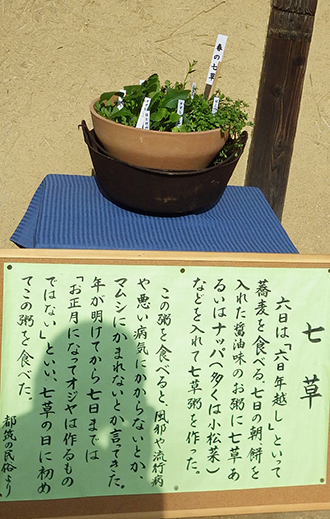 春の七草
七草
六日は「六日年越し」といって
蕎麦を食べる。七日の朝、餅を
入れた醤油味のお粥に七草あ
るいはナッパ(多くは小松菜)
などを入れて七草粥を作った。
この粥を食べると、風邪や流行病
や悪い病気にかからないとか、
マムシにかまれないとか言てきた。
年が明けてから七日までは
「お正月になってオジヤは作るもの
ではない」といい、七草の日に初め
てこの粥を食べた。
都筑の民俗より